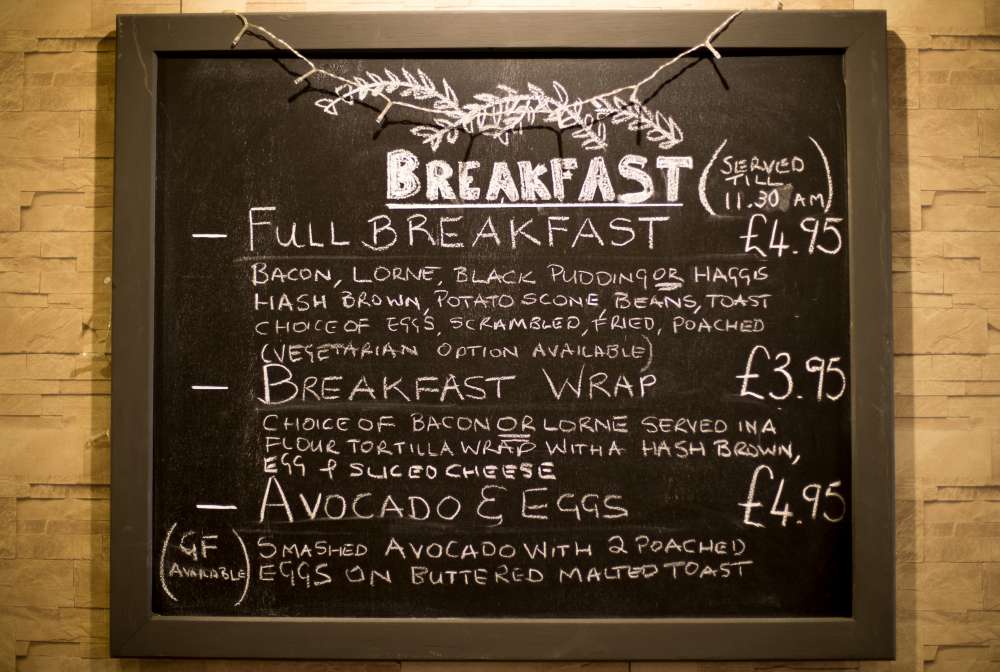 BREAKFAST (SERVED TILL 11.30 AM)
– FULL BREAKFAST £4.95
BACON, LORNE, BLACK PUDDING OR HAGGIS
HASH BROWN, POTATO SCONE, BEANS, TOAST
CHOICE OF EGGS, SCRAMBLED, FRIED, POACHED
(VEGETARIAN OPTION AVAILABLE)
– BREAKFAST WRAP £3.95
CHOICE OF BACON OR LORNE SERVED IN A
FLOUR TORTILLA WRAP WITH A HASH BROWN,
EGG & SLICED CHEESE
– AVOCADO & EGGS £4.95
(GF AVAILABLE)
SMASHED AVOCADO WITH 2 POACHED
EGGS ON BUTTERED MALTED TOAST